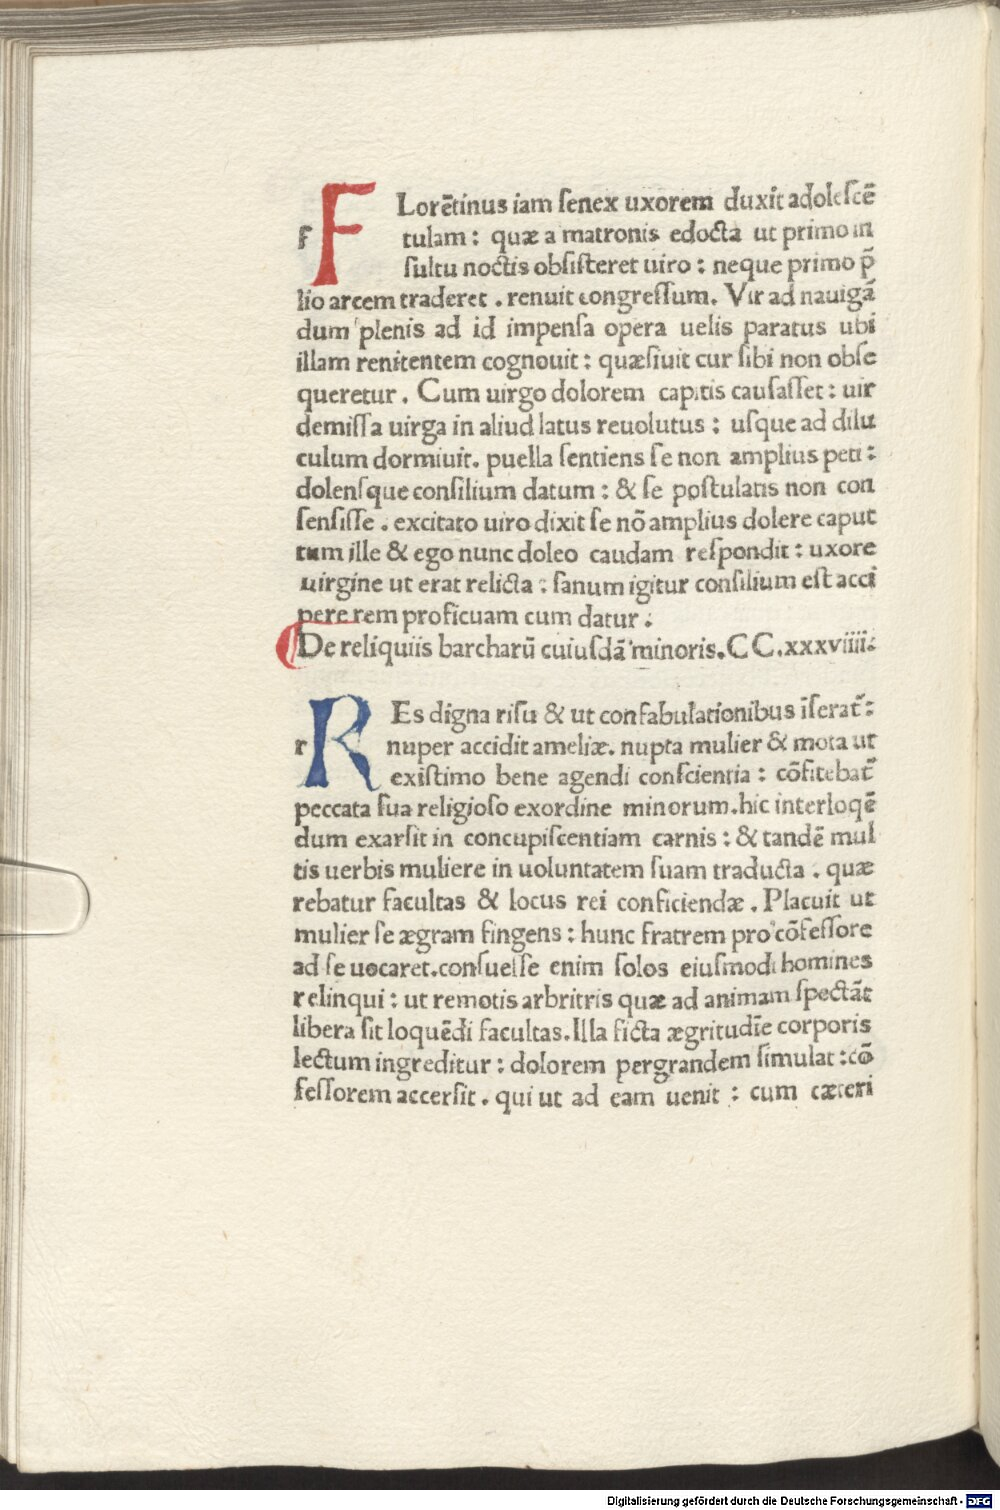 FLorētinus iam ſenex uxorem duxit adoleſcē
f tulam : quæ a matronis edocta ut primo in
ſultu noctis obſiſteret uiro : neque primo p̄
lio arcem traderet . renuit congreſſum. Vir ad nauigā
dum plenis ad id impenſa opera uelis paratus ubi
illam renitentem cognouit : quæſiuit cur ſibi non obſe
queretur . Cum uirgo dolorem capitis cauſaſſet : uir
demiſſa uirga in aliud latus reuolutus : uſque ad dilu
culum dormiuit. puella ſentiens ſe non amplius peti :
dolenſque conſilium datum : & ſe poſtulatis non con
ſenſiſſe . excitato uiro dixit ſe nō amplius dolere caput
tum ille & ego nunc doleo caudam reſpondit : uxore
uirgine ut erat relicta : ſanum igitur conſilium eſt acci
pere rem proficuam cum datur .
De reliquiis barcharū cuiuſdā minoris. CC.xxxviiii.
REs digna riſu & ut confabulationibus īſerat̄ :
r nuper accidit ameliæ. nupta mulier & mota ut
exiſtimo bene agendi conſcientia : cōfitebat̄
peccata ſua religioſo exordine minorum. hic interloqē
dum exarſit in concupiſcentiam carnis : & tandē mul
tis uerbis muliere in uoluntatem ſuam traducta . quæ
rebatur facultas & locus rei conficiendæ . Placuit ut
mulier ſe ægram fingens : hunc fratrem pro cōfeſſore
ad ſe uocaret. conſueſſe enim ſolos eiuſmodi homines
relinqui : ut remotis arbritris quæ ad animam ſpectāt
libera ſit loquēdi facultas. Illa ficta ægritudīe corporis
lectum ingreditur : dolorem pergrandem ſimulat : cō
feſſorem accerſit . qui ut ad eam uenit : cum cæteri
Digitalisierung gefördert durch die Deutsche Forschungsgemeinschaft - DFG